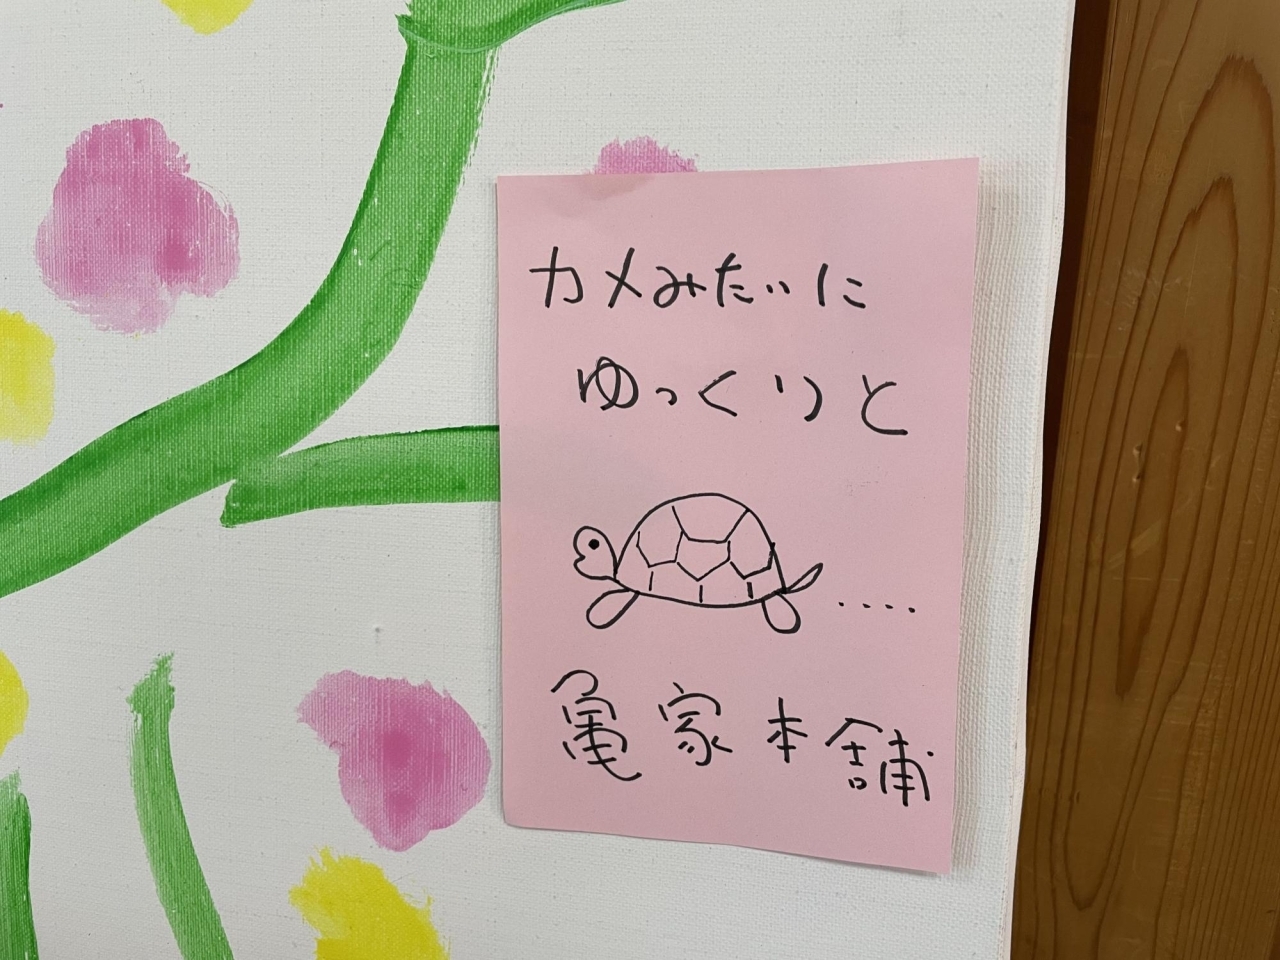 カメみたいに
ゆっくりと
....
亀家本舗